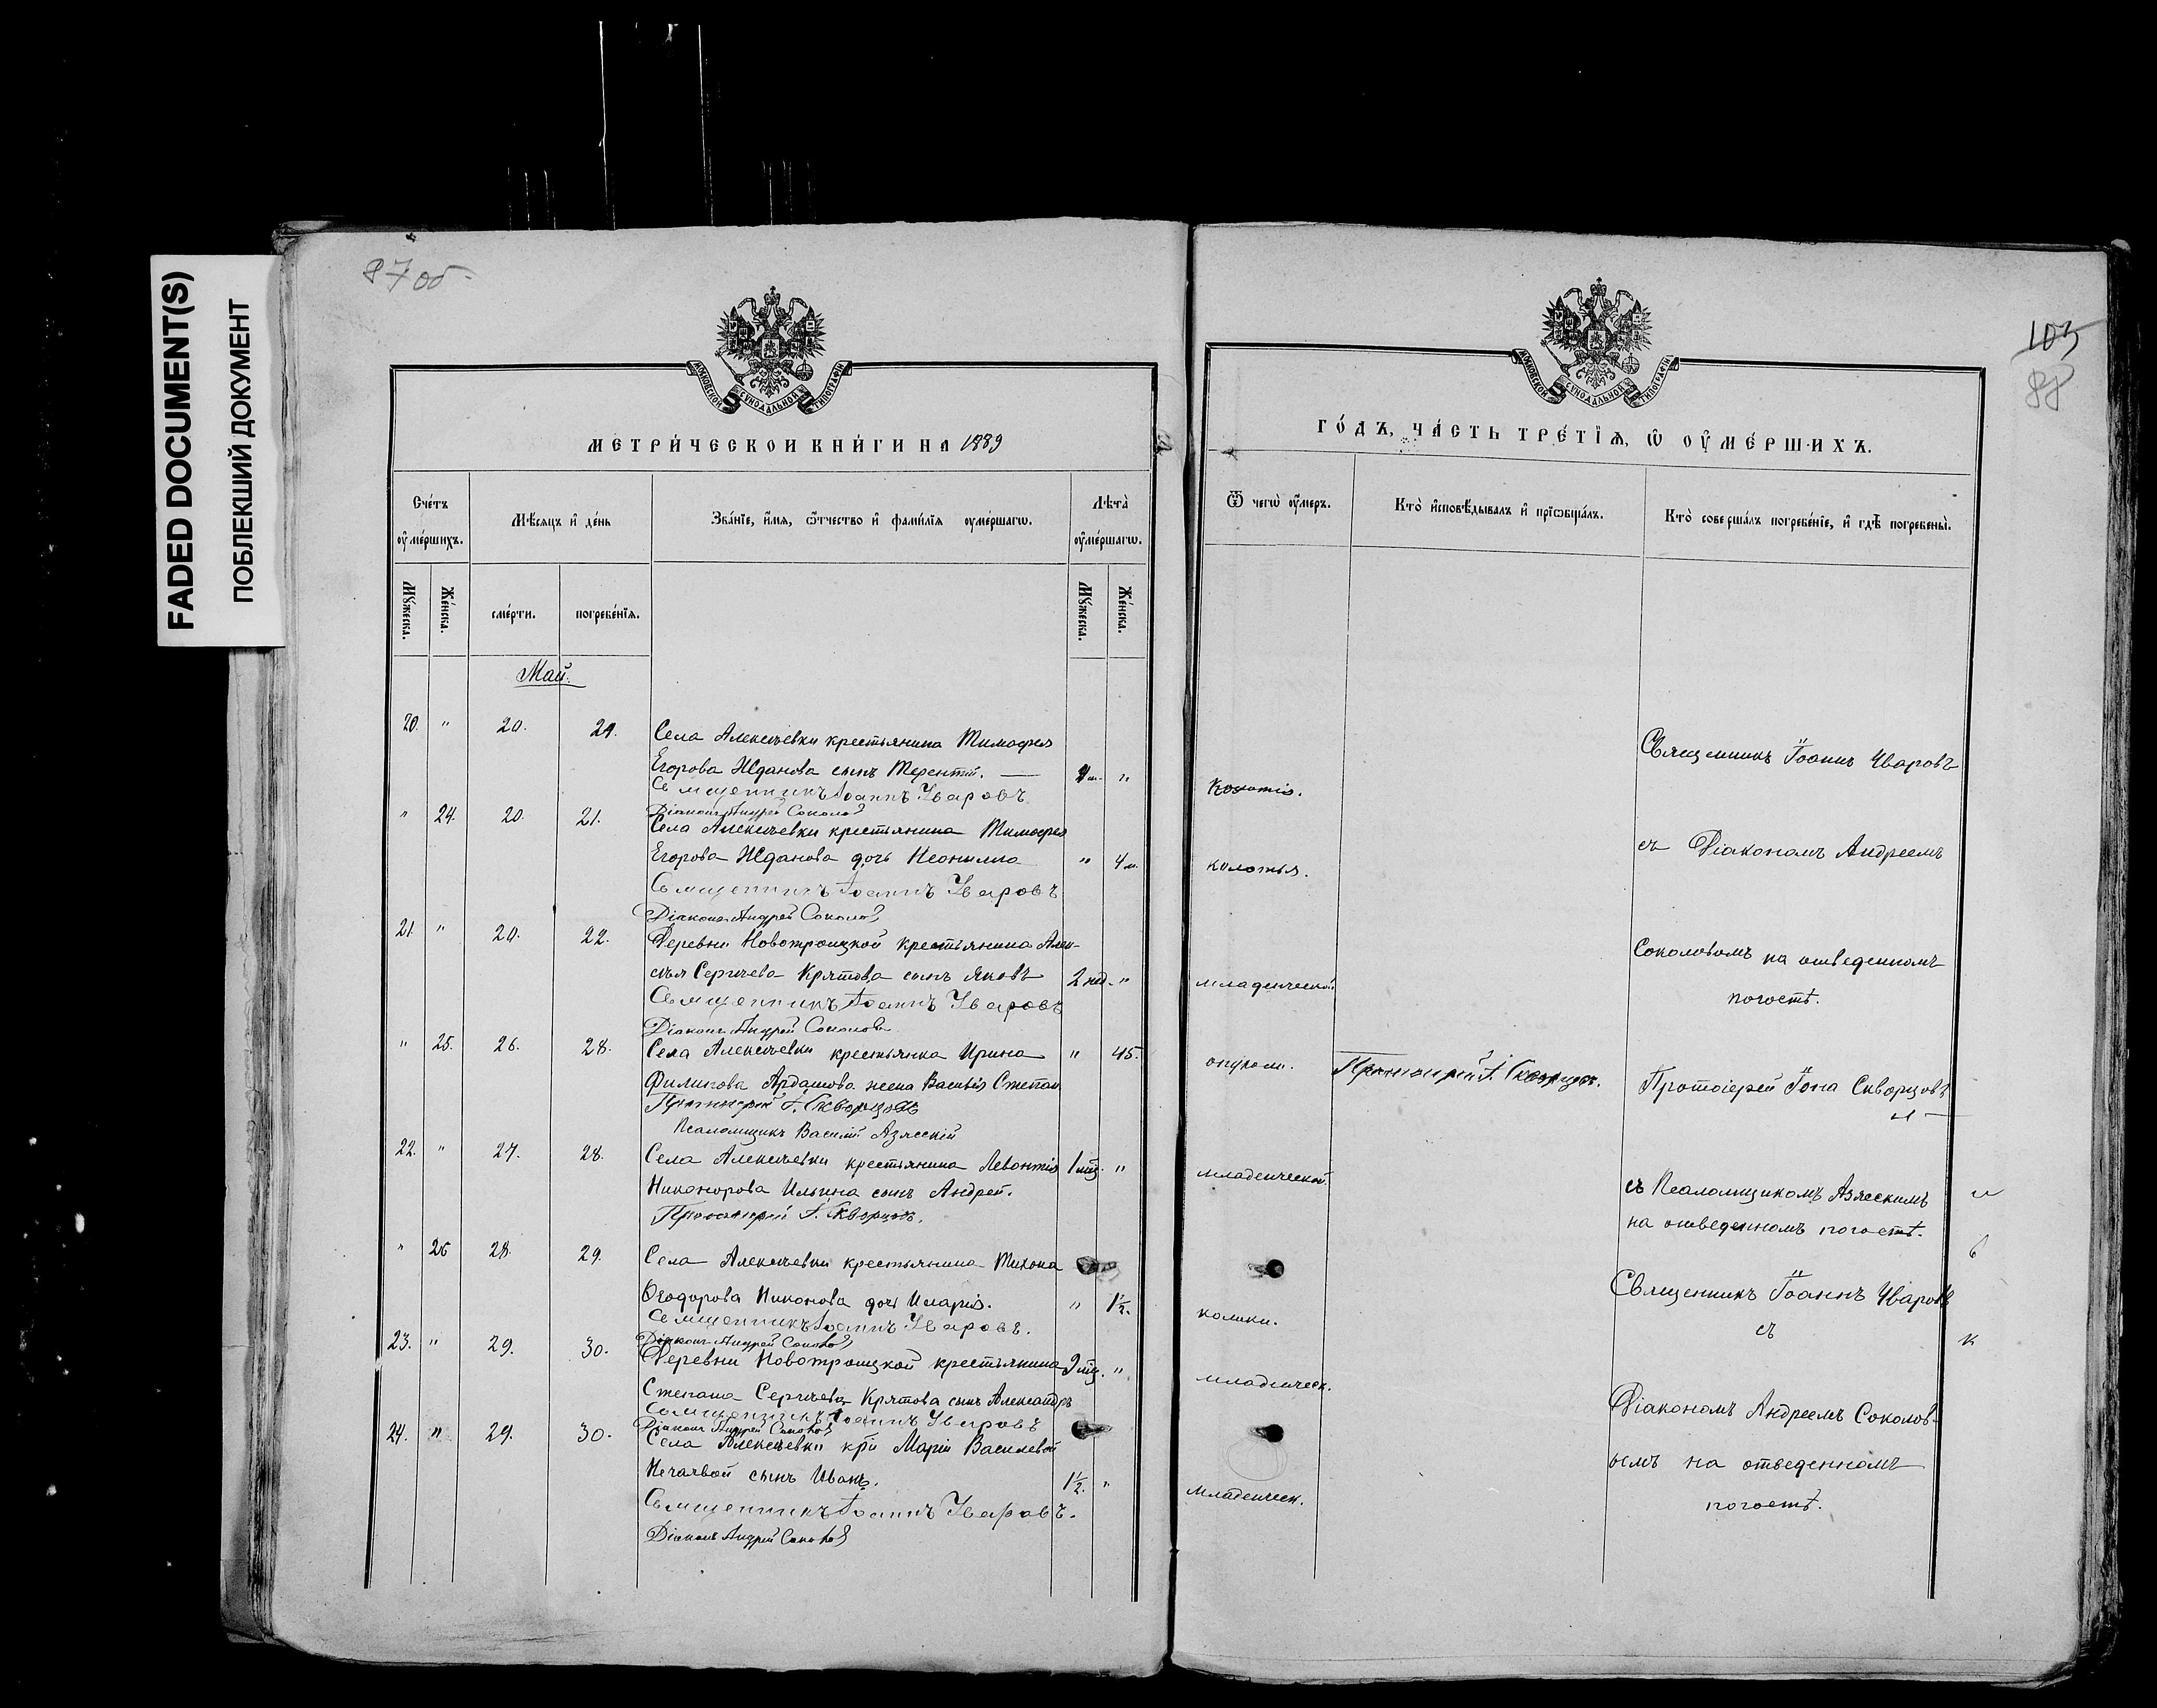 FADED DOCUMENT(S)
ПОБЛЕКШИЙ ДОКУМЕНТ
87 об
МОСКОВСКОЙ СѴНОДАЛЬНОЙ ТИПОГРАФІИ
МЕТРИ́ЧЕСКОИ КНИ́ГИ НА 1889
Сче́тъ ᲂу҆ме́ршихъ.
Мѣ́сяцъ и҆ де́нь
Зва́нїе, и҆́мѧ, ѻ҆́тчество и҆ фами́лїѧ ᲂуме́ршагѡ.
Лѣ́та ᲂу҆ме́ршагѡ.
Мꙋ́жеска.
Же́нска.
сме́рти.
погребе́нїѧ.
Мꙋ́жеска.
Же́нска.
Май.
20. " 20. 21.
Села Алексѣевки крестьянина Тимофея
Егорова Жданова сынъ Терентій. — "
Священникъ Іоаннъ Уваровъ
Діаконъ Андрей Соколовъ
" 24. 20. 21.
Села Алексѣевки крестьянина Тимофея
Егорова Жданова дочь Неонилла " 4 м.
Священникъ Іоаннъ Уваровъ
Діаконъ Андрей Соколовъ
21. " 20. 22.
Деревни Новотроицкой крестьянина Алек-
сѣя Сергѣева Крятова сынъ Яковъ 2 нед. "
Священникъ Іоаннъ Уваровъ
Діаконъ Андрей Соколовъ
" 25. 26. 28.
Села Алексѣевки крестьянка Ирина " 45.
Филипова Ардашова жена Василія Степан
Протоіерей І. Скворцовъ
Псаломщикъ Василій Азясскій
22. " 27. 28.
Села Алексѣевки крестьянина Левонтія 1 мѣс. "
Никонорова Ильина сынъ Андрей.
Протоіерей І. Скворцовъ.
" 26 28. 29.
Села Алексѣевки крестьянина Тихона
Ѳеодорова Никонова дочь Марія. " 1½.
Священникъ Іоаннъ Уваровъ.
Діаконъ Андрей Соколовъ
23. " 29. 30.
Деревни Новотроицкой крестьянина 9 мѣс. "
Степана Сергѣева Крятова сынъ Александръ
Священникъ Іоаннъ Уваровъ
Діаконъ Андрей Соколовъ
24. " 29. 30.
Села Алексѣевки кр. Маріи Василевой
Нечаевой сынъ Иванъ. 1½. "
Священникъ Іоаннъ Уваровъ.
Діаконъ Андрей Соколовъ
103
88
МОСКОВСКОЙ СѴНОДАЛЬНОЙ ТИПОГРАФІИ
ГО́ДЪ, ЧА́СТЬ ТРЕ́ТЇѦ, Ѡ҆ ОУ҆МЕ́РШИХЪ.
Ѿ чегѡ̀ ᲂу҆́меръ.
Кто̀ и҆сповѣ́дывалъ и҆ прїѡбща́лъ.
Кто̀ соверша́лъ погребе́нїе, и҆ гдѣ̀ погребены̀.
Священникъ Іоаннъ Уваровъ
колотья.
съ Діакономъ Андреемъ
Соколовымъ на отведенномъ
младенческой
погостѣ.
Протоіерей І. Скворцовъ.
Протоіерей Іона Скворцовъ
младенческой.
съ Псаломщикомъ Азясскимъ
на отведенномъ погостѣ.
Священникъ Іоаннъ Уваровъ
колики.
съ
младенческ.
Діакономъ Андреемъ Соколов-
ымъ на отведенномъ
младенческ.
погостѣ.